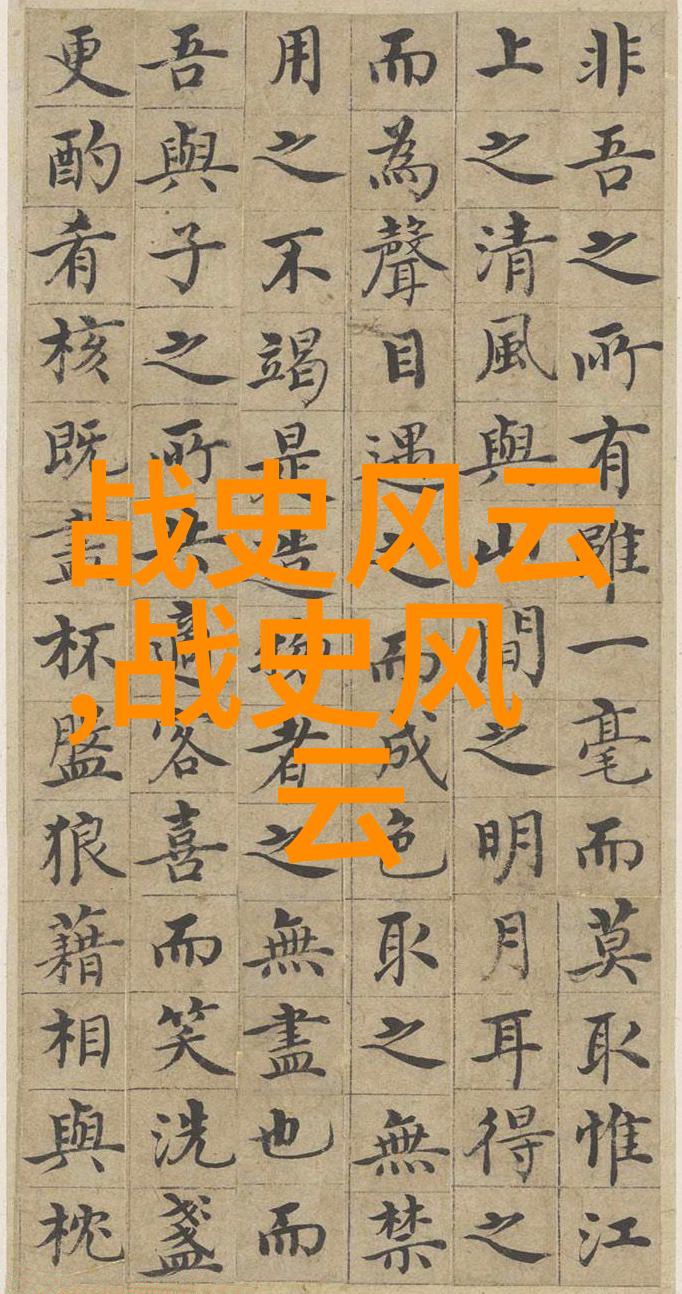 非吾之所有雖一毫而莫取惟江
上之清風與山間之明月耳得之
而為聲目遇之而成色取之無禁
用之不竭是造物者之無盡也而
吾與子之所共適客喜而笑洗盞
更酌肴核既盡杯盤狼藉相與枕
战史风云
,战史风
云